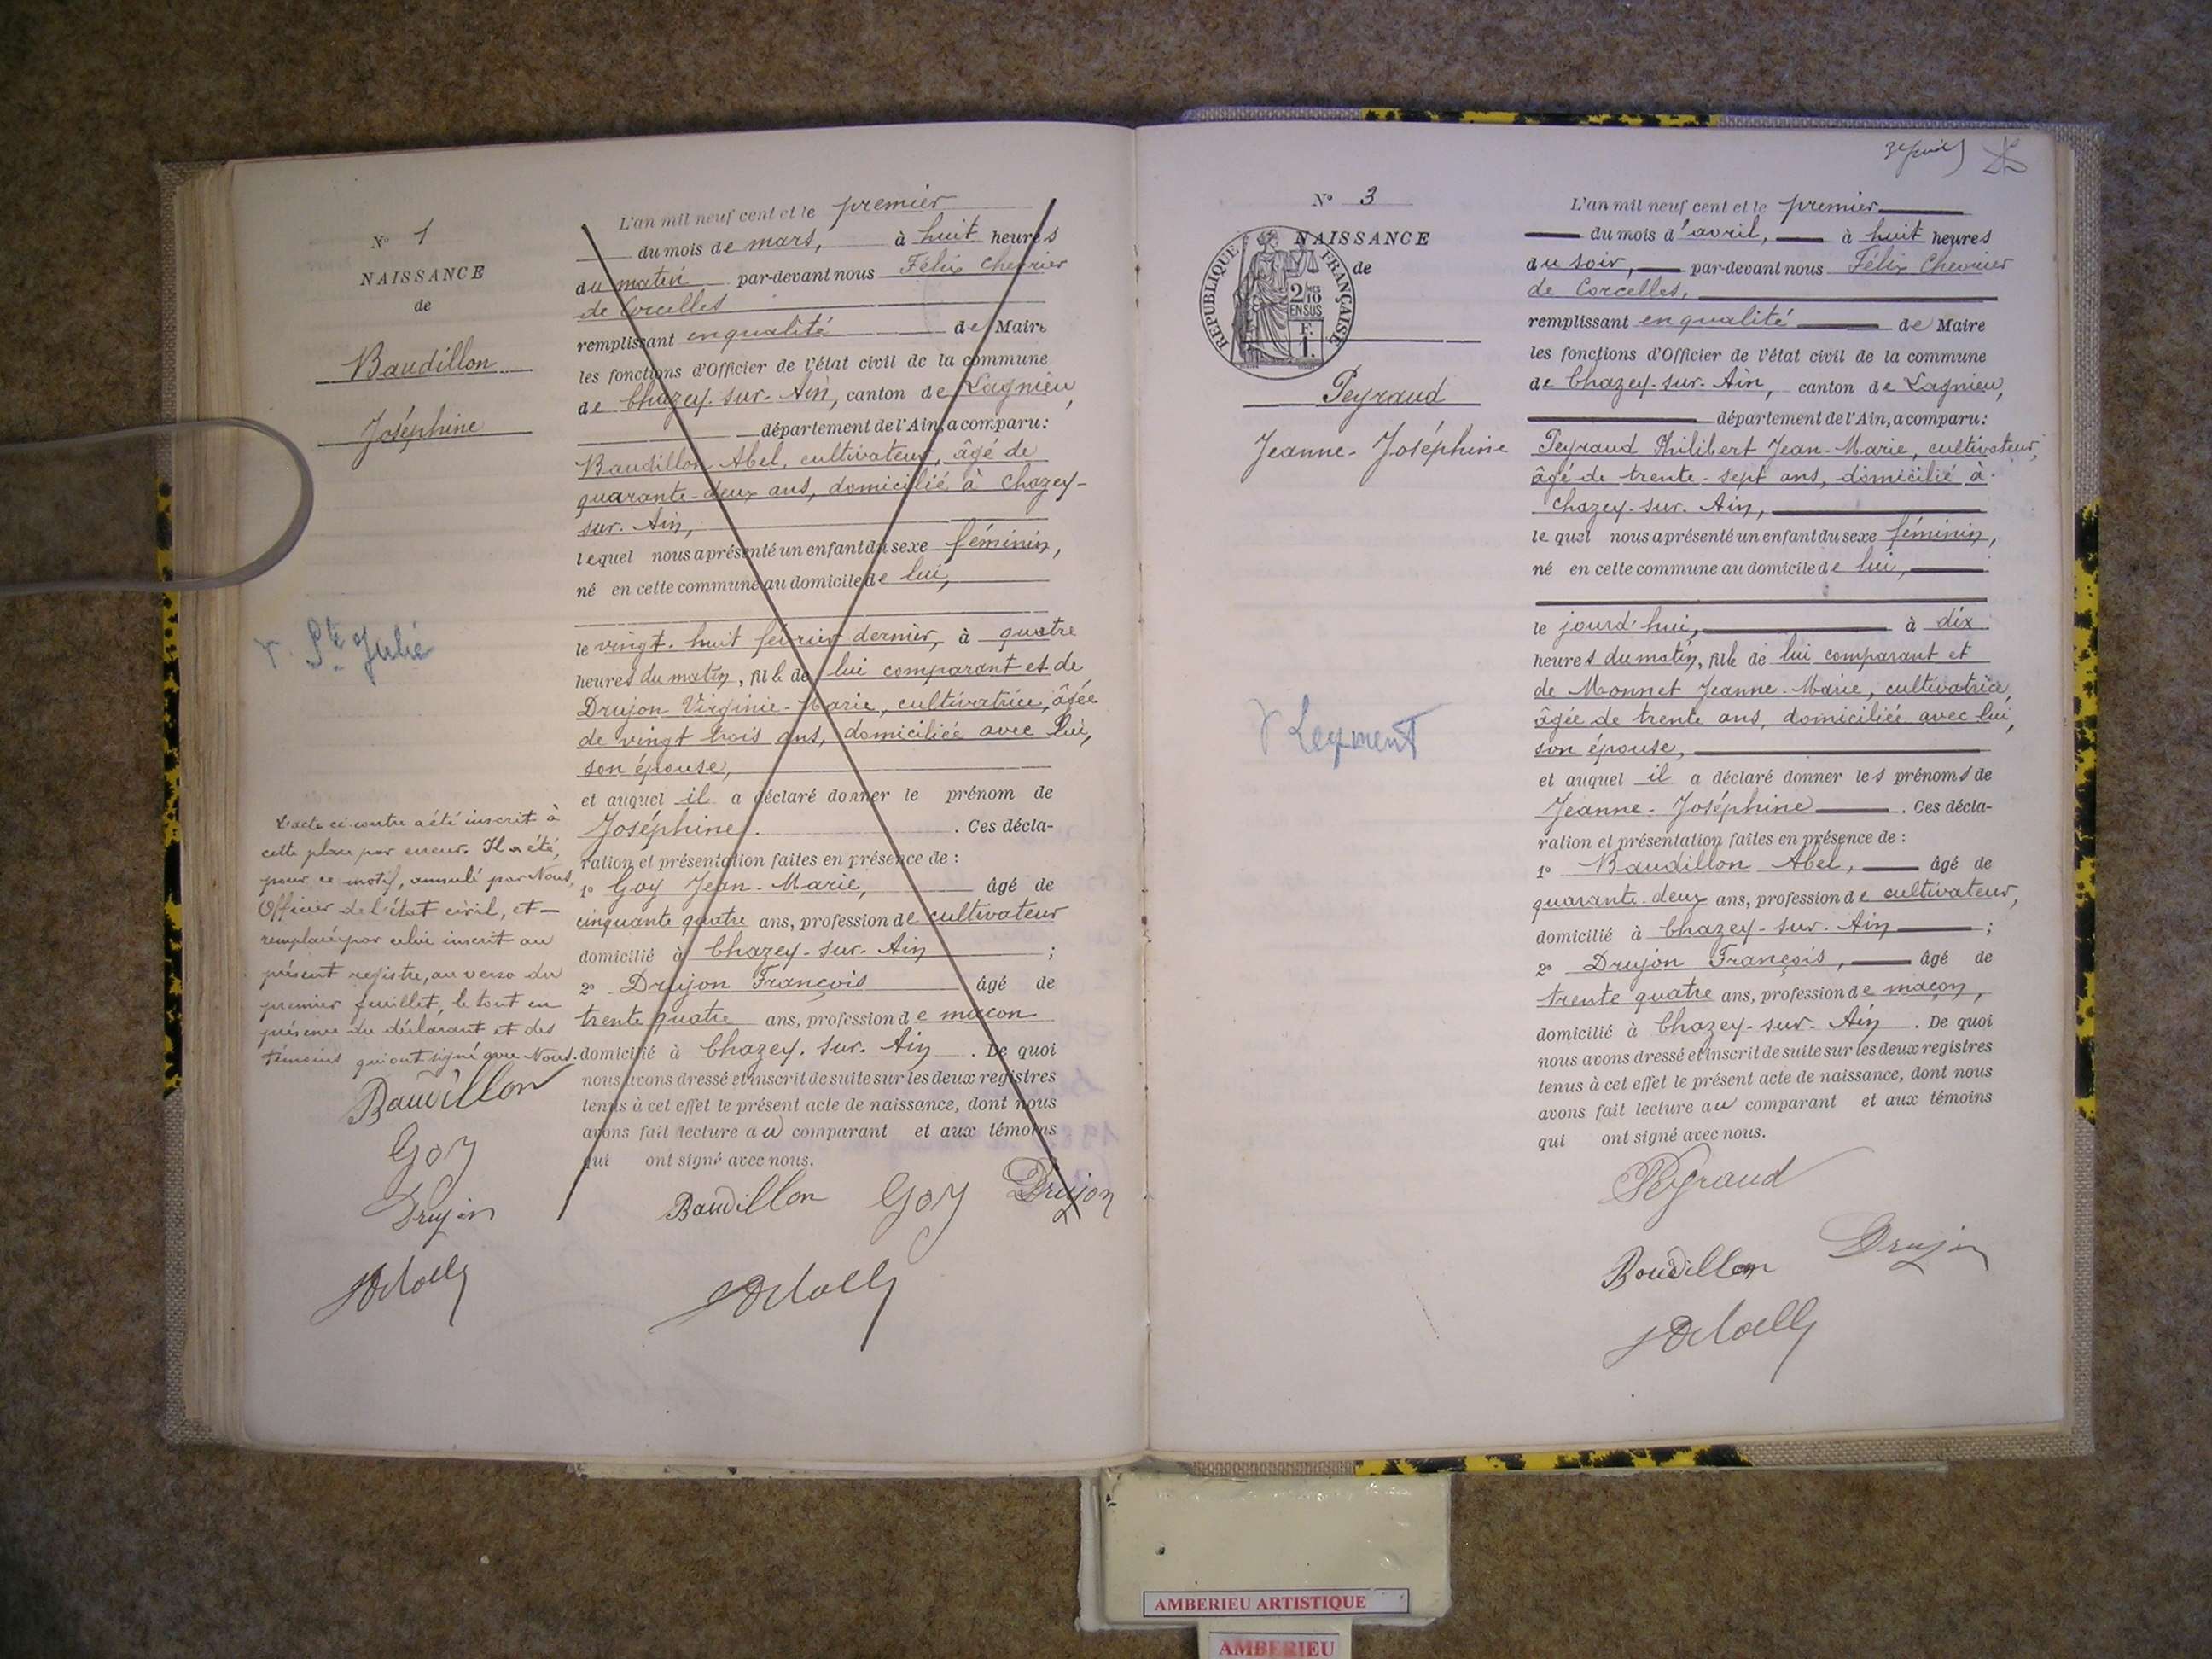 N° 1
NAISSANCE
de
Baudillon
Joséphine
Ste Julie
L'acte ci-contre a été inscrit à
cette place par erreur. Il a été,
pour ce motif, annulé par Nous,
Officier de l'état civil, et
remplacé par celui inscrit au
présent registre, au verso du
premier feuillet, le tout en
présence du déclarant et des
témoins qui ont signé avec Nous.
Baudillon
Goy
Drujon
L'an mil neuf cent et le premier
du mois de mars, à huit heures
du matin par-devant nous Félix Chevrier
de Corcelles
remplissant en qualité de Maire
les fonctions d'Officier de l'état civil de la commune
de Chazey-sur-Ain, canton de Lagnieu,
département de l'Ain, a comparu:
Baudillon Abel, cultivateur, âgé de
quarante-deux ans, domicilié à Chazey-
sur-Ain,
lequel nous a présenté un enfant du sexe féminin,
né en cette commune au domicile de lui,
le vingt-huit février dernier, à quatre
heures du matin, fille de lui comparant et de
Drujon Virginie-Marie, cultivatrice, âgée
de vingt trois ans, domiciliée avec lui,
son épouse,
et auquel il a déclaré donner le prénom de
Joséphine. . Ces décla-
ration et présentation faites en présence de :
1° Goy Jean-Marie, âgé de
cinquante quatre ans, profession de cultivateur
domicilié à Chazey-sur-Ain ;
2° Drujon François âgé de
trente quatre ans, profession de maçon
domicilié à Chazey-sur-Ain . De quoi
nous avons dressé et inscrit de suite sur les deux registres
tenus à cet effet le présent acte de naissance, dont nous
avons fait lecture au comparant et aux témoins
qui ont signé avec nous.
Baudillon Goy Drujon
N° 3
NAISSANCE
de
REPUBLIQUE FRANÇAISE
2/10
EN SUS
F.
1.
Peyraud
Jeanne-Joséphine
Leyment
L'an mil neuf cent et le premier
du mois d'avril, à huit heures
du soir, par-devant nous Félix Chevrier
de Corcelles,
remplissant en qualité de Maire
les fonctions d'Officier de l'état civil de la commune
de Chazey-sur-Ain, canton de Lagnieu,
département de l'Ain, a comparu:
Peyraud Philibert Jean-Marie, cultivateur,
âgé de trente-sept ans, domicilié à
Chazey-sur-Ain,
le quel nous a présenté un enfant du sexe féminin,
né en cette commune au domicile de lui,
le jourd'hui, à dix
heures du matin, fille de lui comparant et
de Monnet Jeanne-Marie, cultivatrice,
âgée de trente ans, domiciliée avec lui,
son épouse,
et auquel il a déclaré donner les prénoms de
Jeanne-Joséphine . Ces décla-
ration et présentation faites en présence de :
1° Baudillon Abel, âgé de
quarante-deux ans, profession de cultivateur,
domicilié à Chazey-sur-Ain ;
2° Drujon François, âgé de
trente quatre ans, profession de maçon,
domicilié à Chazey-sur-Ain . De quoi
nous avons dressé et inscrit de suite sur les deux registres
tenus à cet effet le présent acte de naissance, dont nous
avons fait lecture au comparant et aux témoins
qui ont signé avec nous.
Peyraud
Drujon
Baudillon
AMBERIEU ARTISTIQUE
AMBERIEU